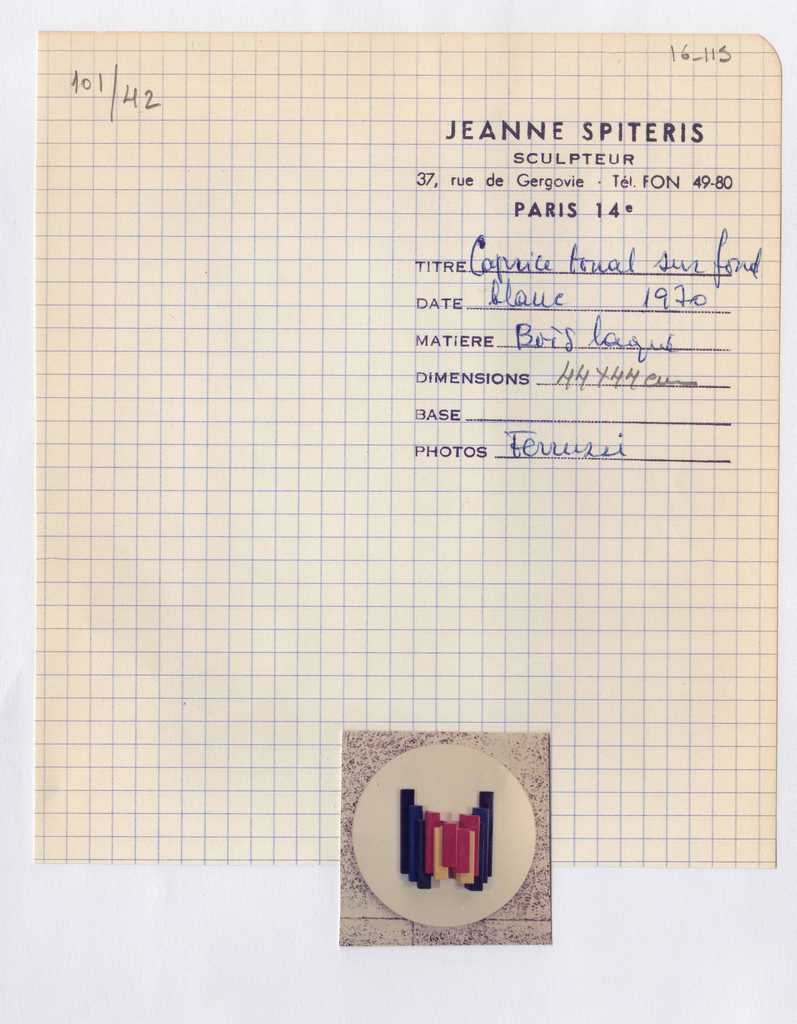 16-115
101/42
JEANNE SPITERIS
SCULPTEUR
37, rue de Gergovie - Tél. FON 49-80
PARIS 14e
TITRE Caprice tonal sur fond
DATE blanc 1970
MATIERE Bois laqué
DIMENSIONS 44x44 cm
BASE
PHOTOS Ferruzzi